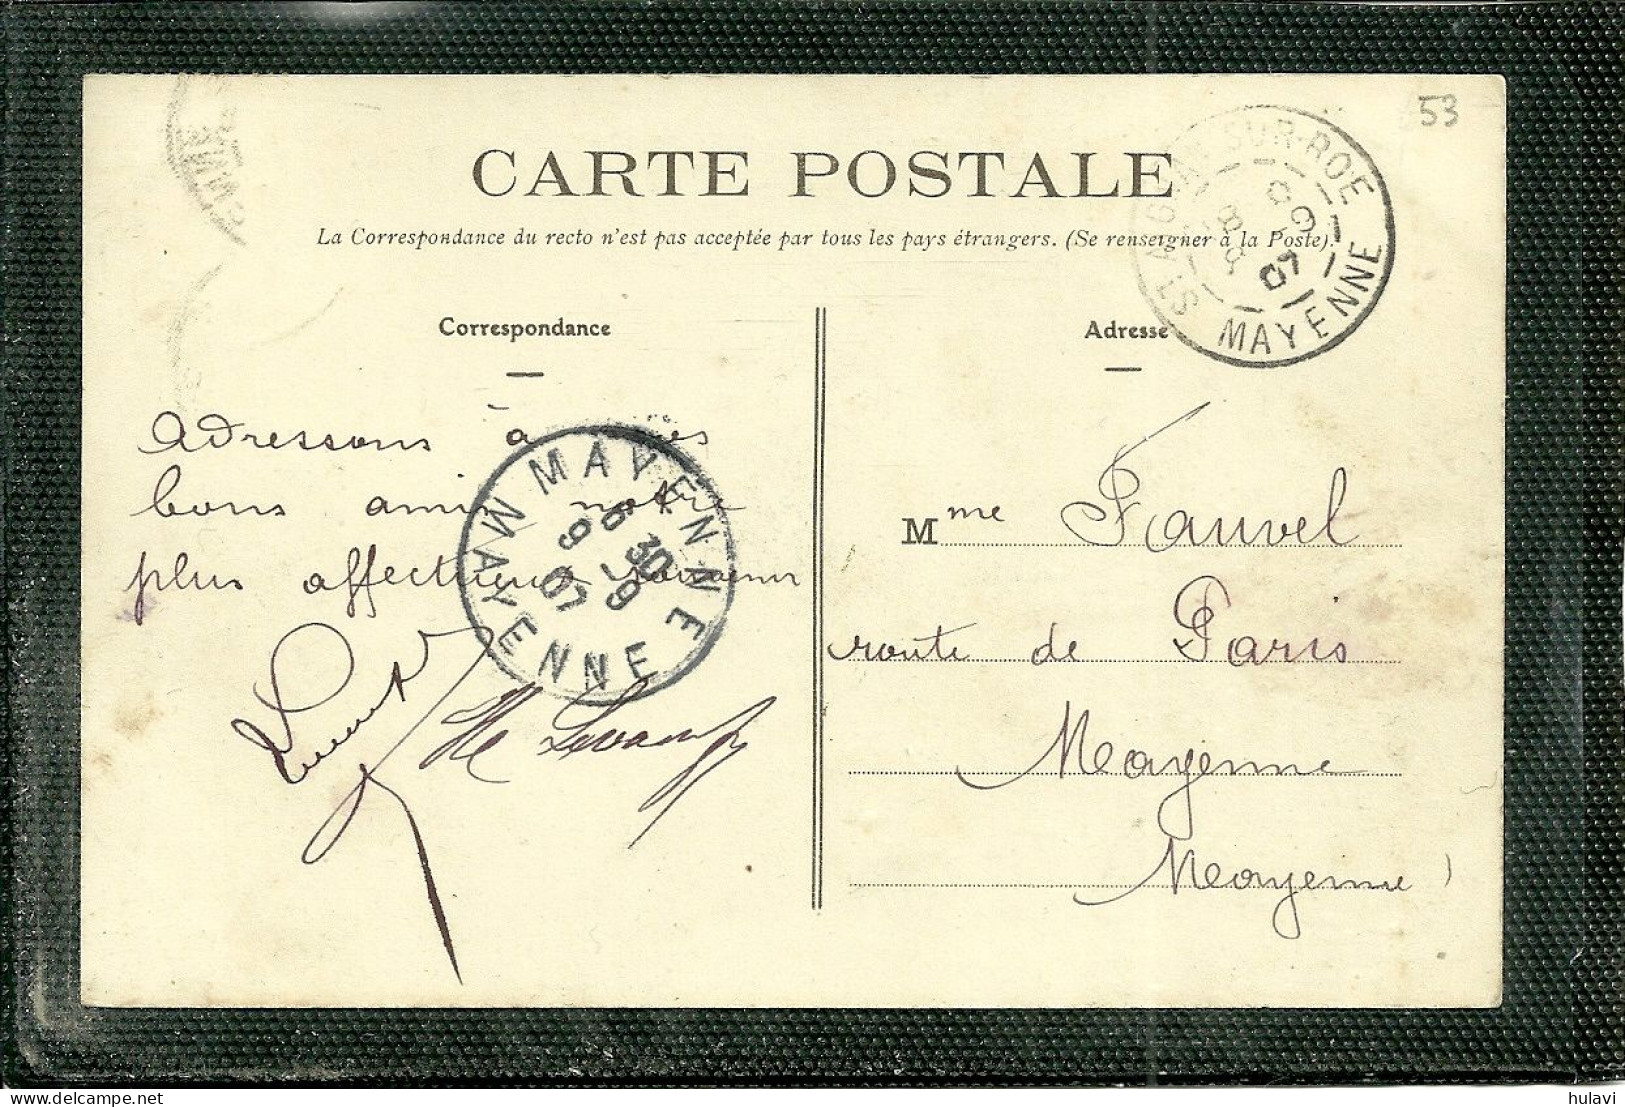 53
CARTE POSTALE
La Correspondance du recto n'est pas acceptée par tous les pays étrangers. (Se renseigner à la Poste).
ST AGNAN-SUR-ROE
MAYENNE
07
Correspondance
Adresse
Adressons à nos
bons amis notre
plus affectueux souvenir
MAYENNE
6 30
9 - 9
07
MAYENNE
Mme Fauvel
route de Paris
Mayenne
Mayenne
hulavi